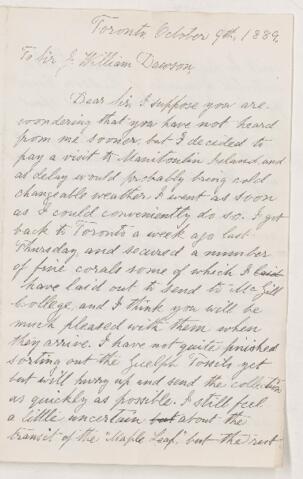 Toronto October 9th, 1889.
To Sir J. William Dawson,
Dear Sir, I suppose you are
woondering that you have not heard
from me sooner but I decided to
pay a visit to Manitoulin Island, and
as delay would probably bring cold
changeable weather I went as soon
as I could conveniently do so. I got
back to Toronto a week ago last
Thursday and secured a number
of fine corals some of which I
have laid out to send to McGill
College, and I think you will be
much pleased with them when
they arrive. I have not quite finished
sorting out the Guelph Fossils yet
but will hurry up and send the collection
as quickly as possible. I still feel
a little uncertain but about the
transit of the "Maple Leaf", but the rest